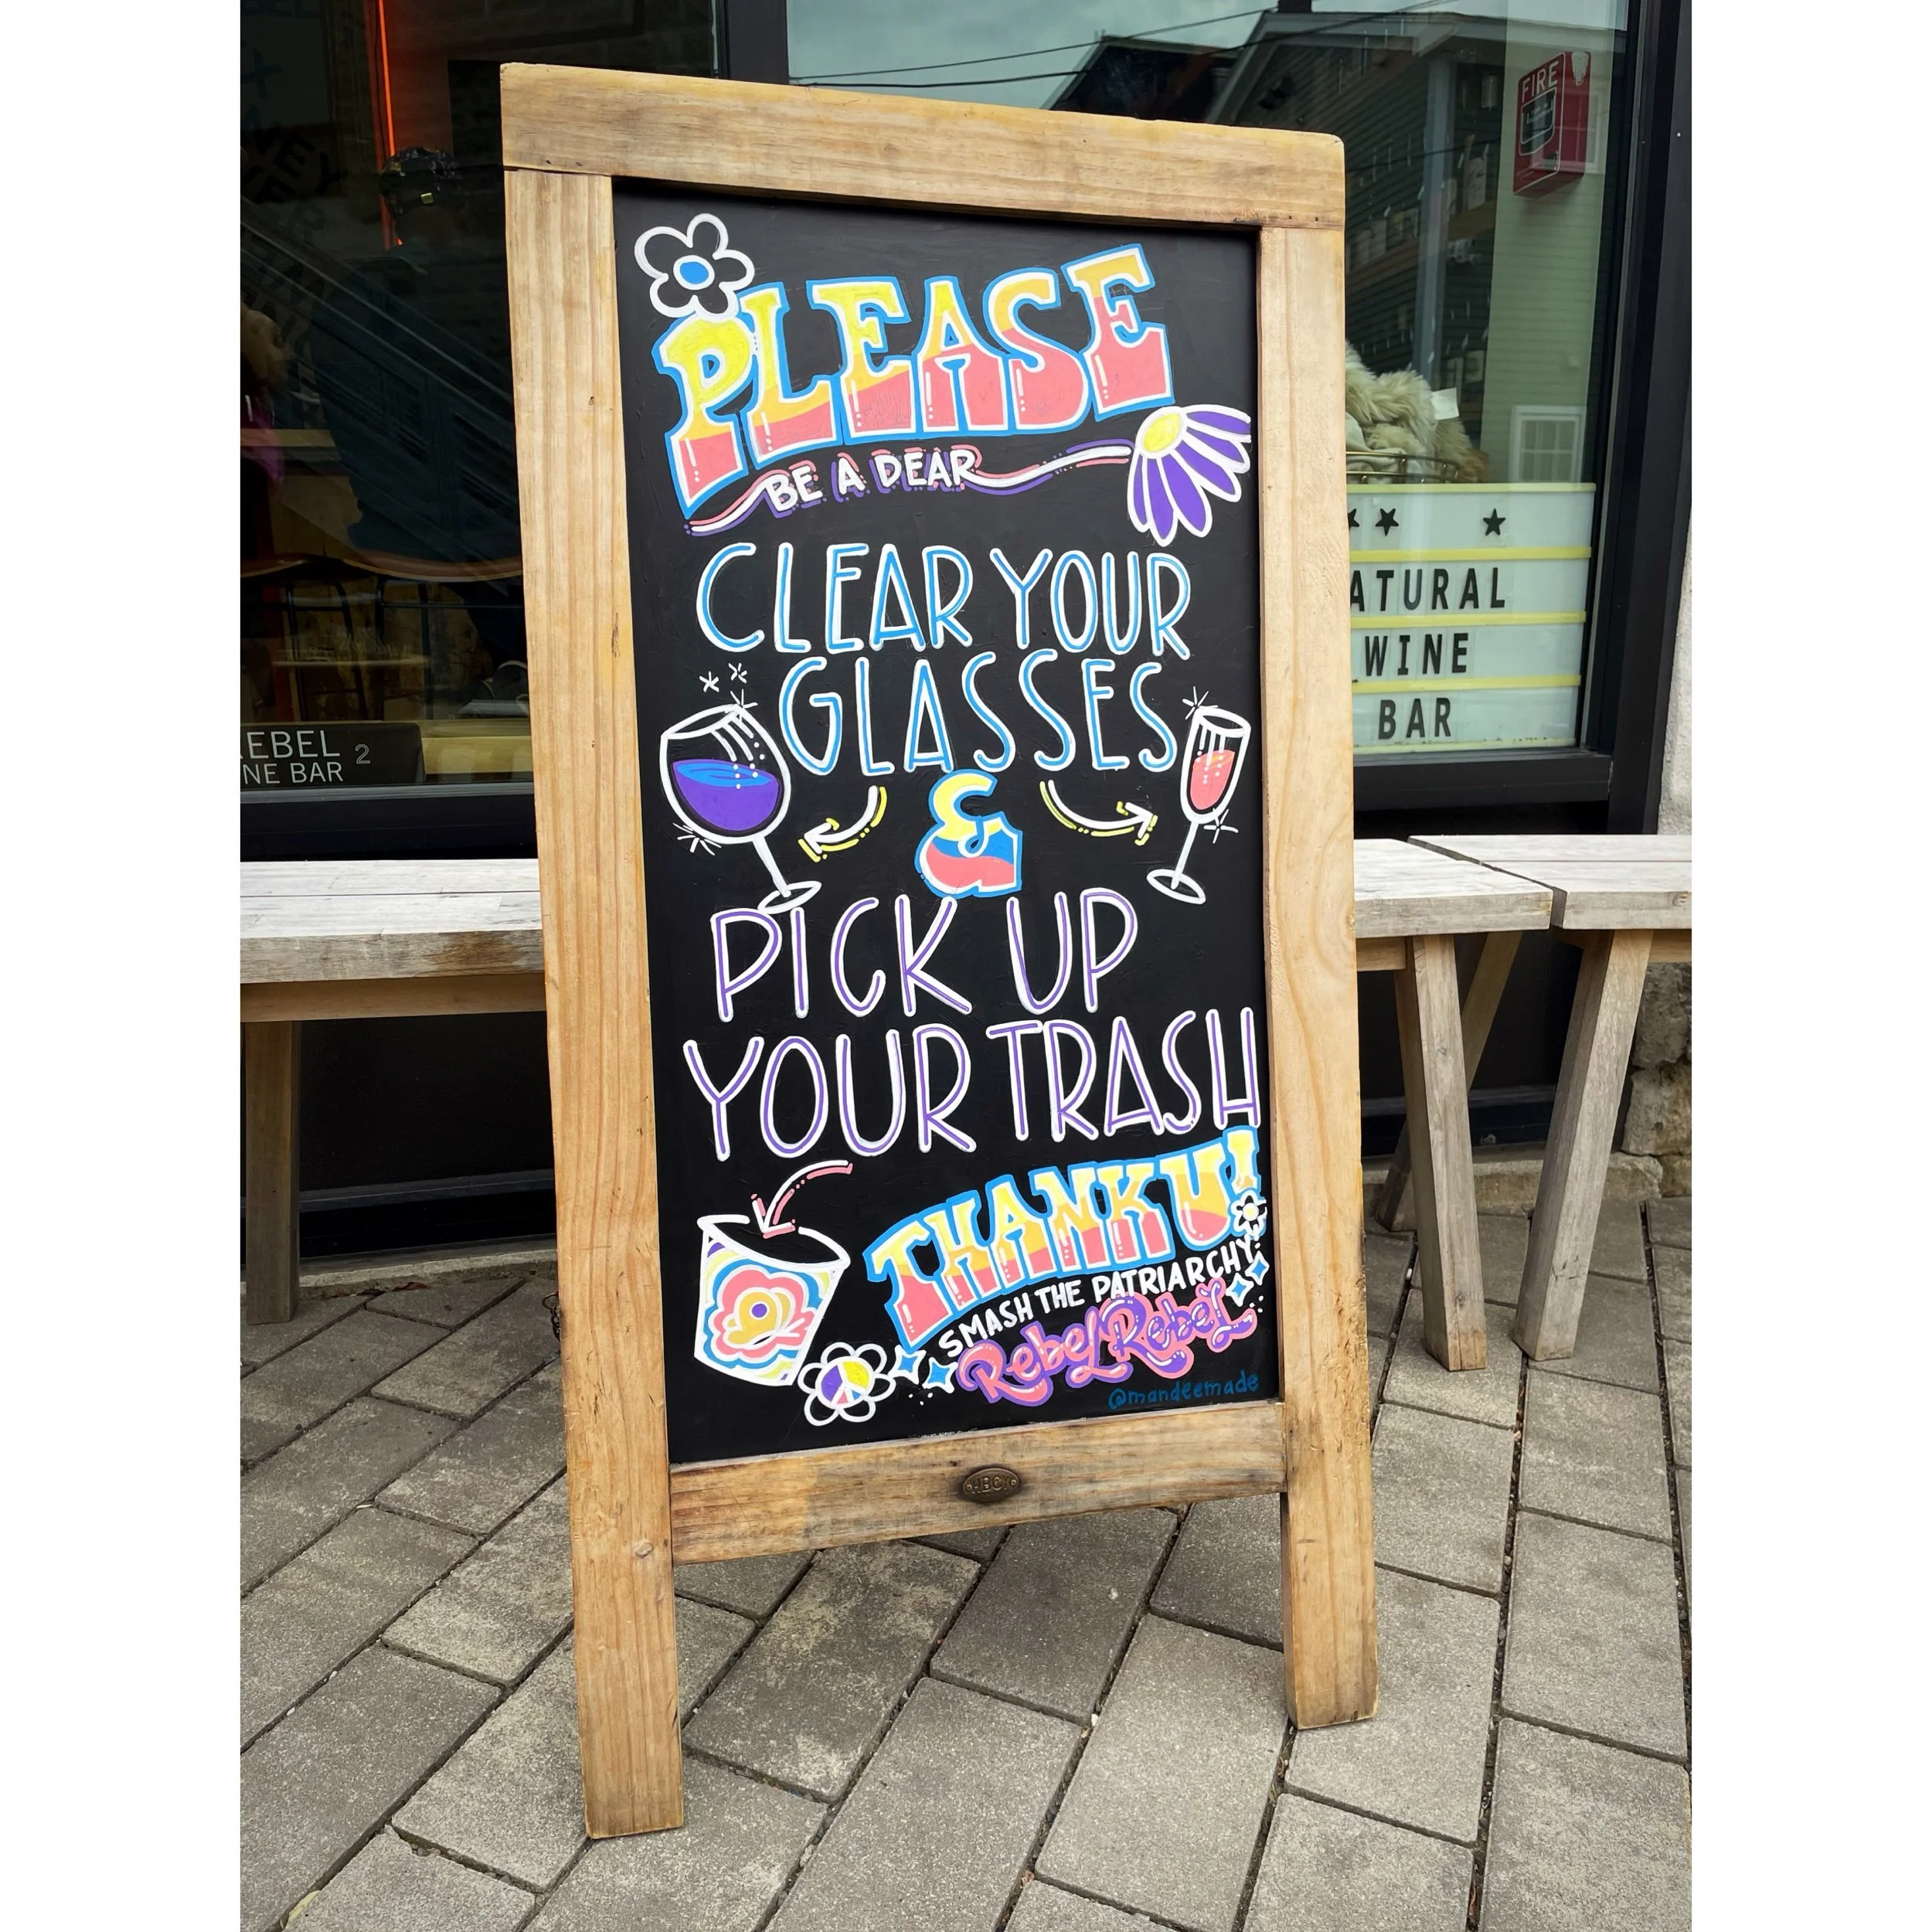 PLEASE
BE A DEAR
CLEAR YOUR
GLASSES
&
PICK UP
YOUR TRASH
THANK U!
SMASH THE PATRIARCHY
Rebel Rebel
@mandeemade
FIRE
ATURAL
WINE
BAR
EBEL 2
NE BAR